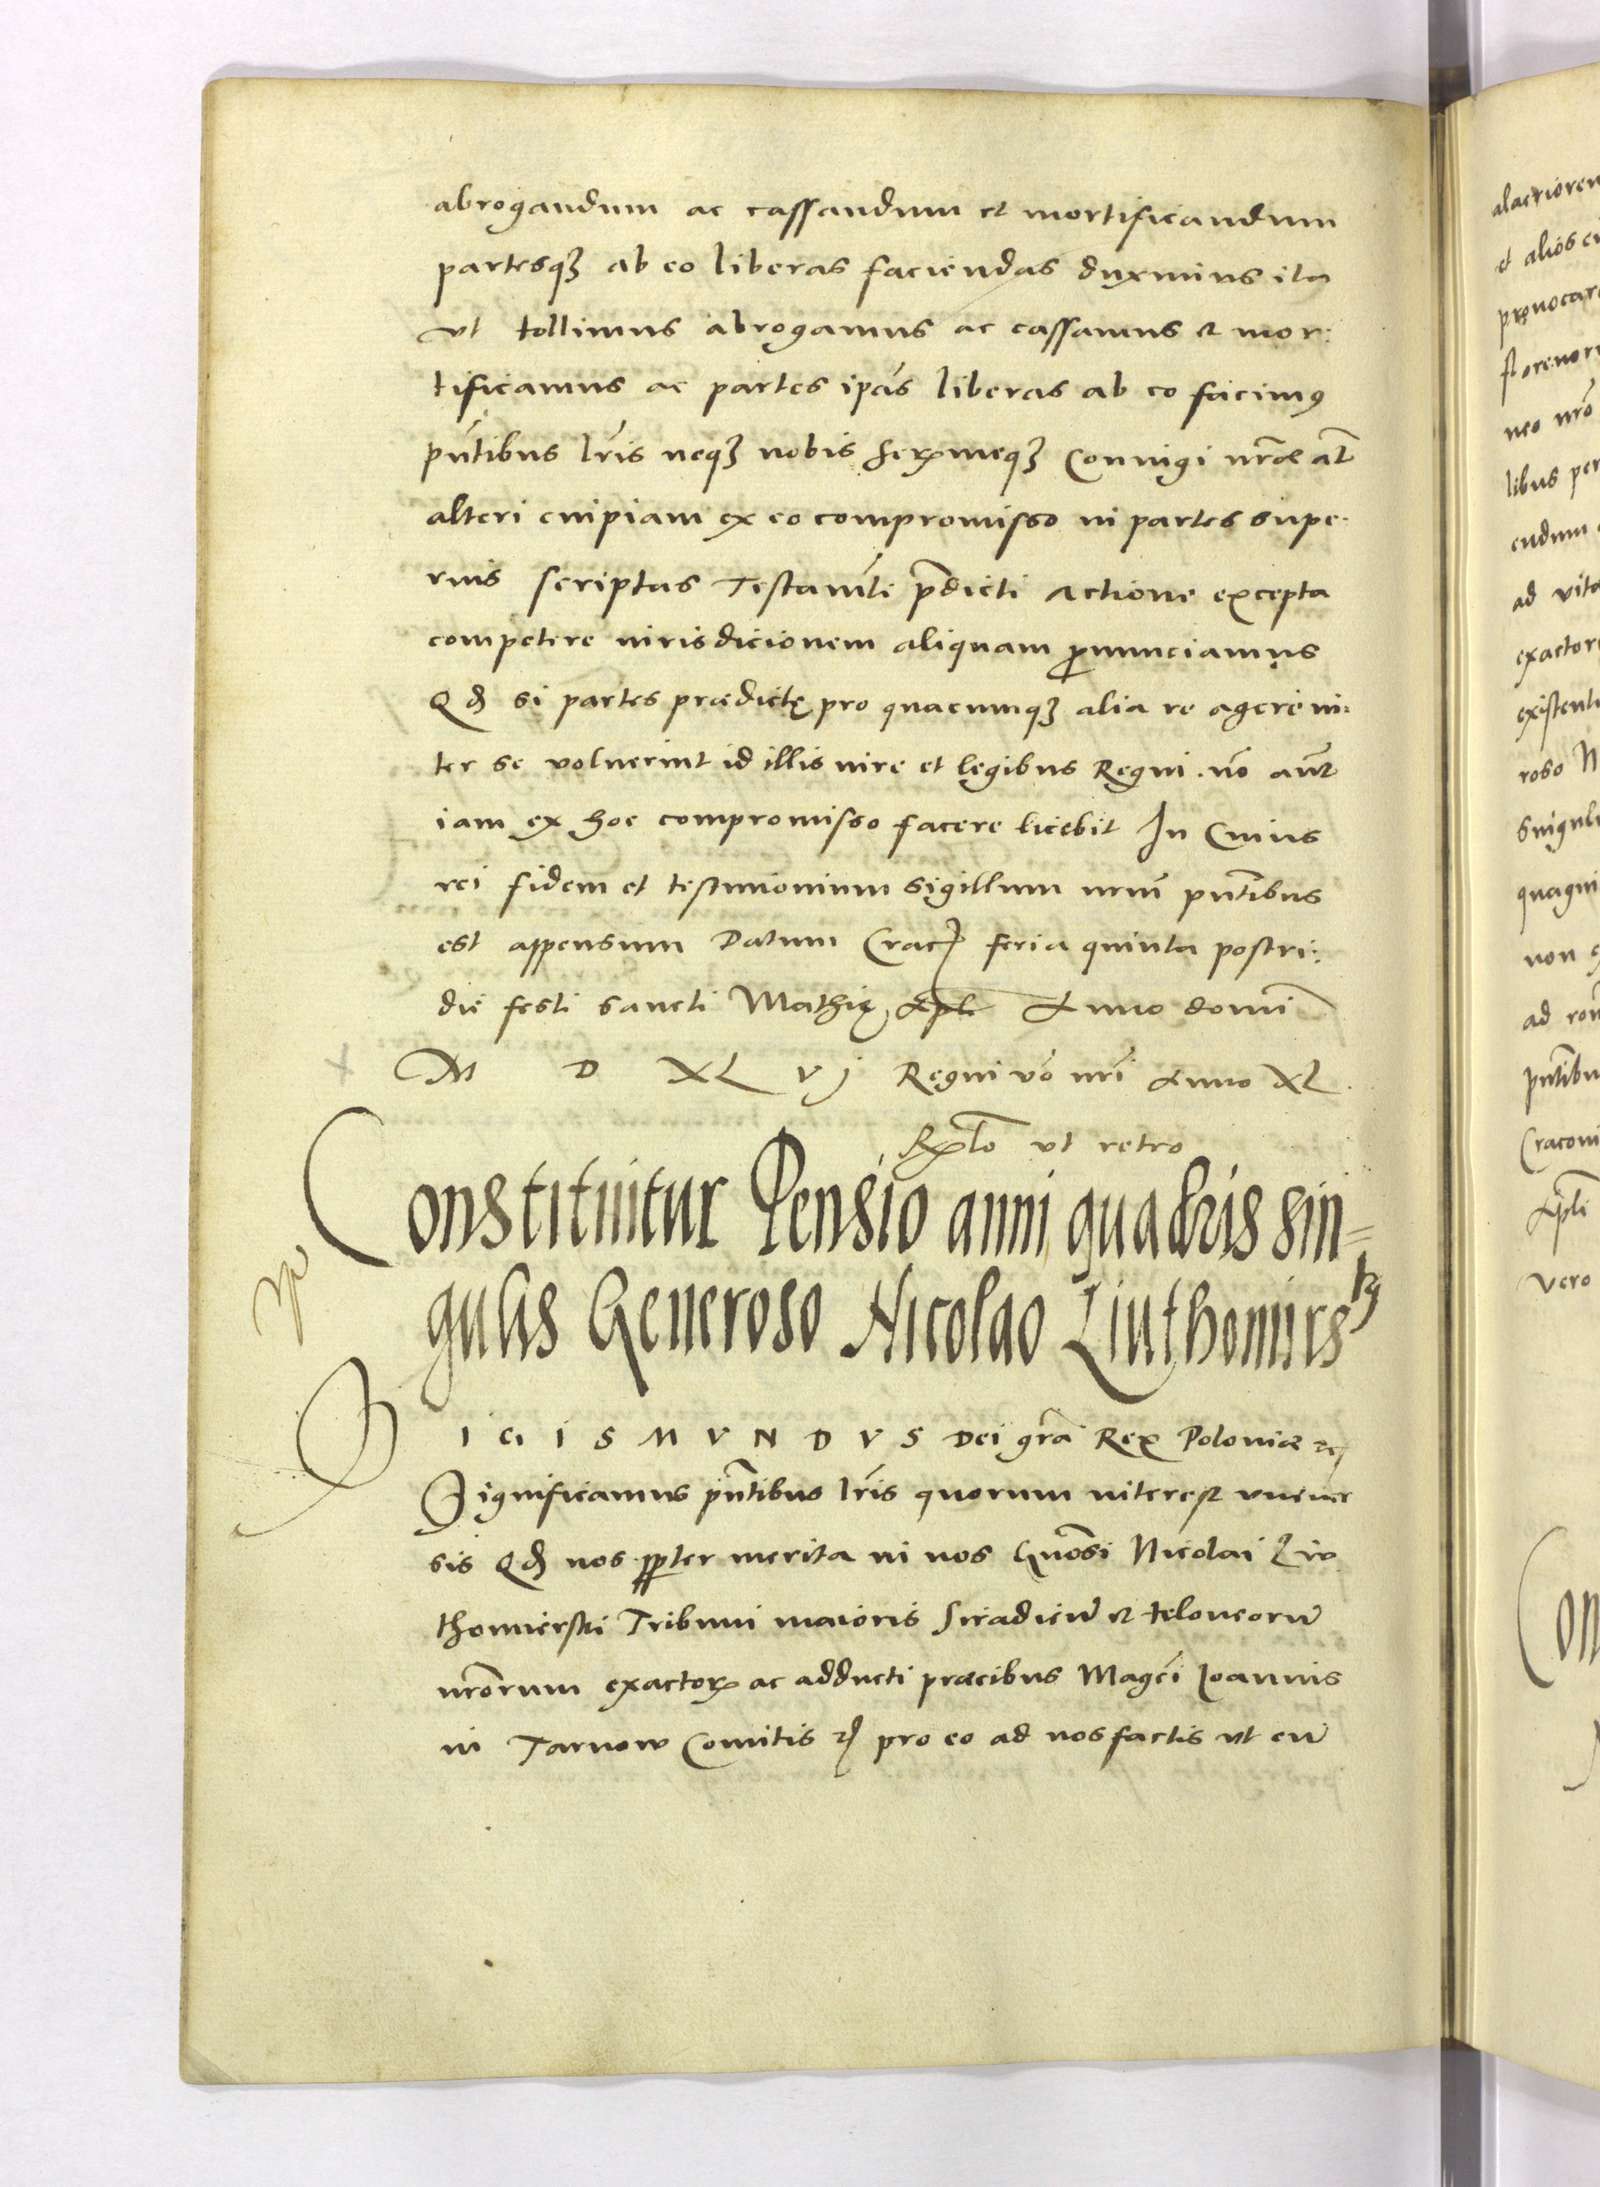 abrogandum ac cassandum et mortificandum
partesqꝫ ab eo liberas faciendas duximus ita
vt tollimus abrogamus ac cassamus et mor:
tificamus ac partes ipas liberas ab eo facimus
pñtibus lr̃is neqꝫ nobis Serꝫmeqꝫ Coniugi nr̃æ at̃
alteri cuipiam ex eo compromisso in partes supe-
rius scriptas Testam̃ti p̃dicti actione excepta
competere iurisdicionem aliquam ꝓnunciamus
Qd si partes prædictę pro quacumqꝫ alia re agere in:
ter se voluerint id illis iure et legibus Regni. nõ aũt
iam ex hoc compromisso facere licebit In Cuius
rei fidem et testimonium sigillum nrm̃ pñtibus
est appensum Datum Crac feria quinta postri:
die festi sancti Mathię Apli Anno domi
M D XL vj Regni vo nr̃i Anno XL
Rlo vt retro
Constituitur Pensio anni quadris sin=
gulis Generoso Nicolao Liuthomirs
SIGISMVNDVS Dei gr̃a Rex Poloniæ etc
Significamus pñtibus lr̃is quorum interest vniuer
sis Qd nos ꝓpter merita in nos Gñosi Nicolai Liv
thomierski Tribuni maioris Siradieñ et teloneorũ
nr̃orum exactorꝫ ac adducti præcibus Magci Ioannis
in Tarnow Comitis etc pro eo ad nos factis vt eũ
alacriorem
et alios
florenor
neo nr̃o
libus per
ad vita
exactor
existenti
roso N
Singul
non
pñtibu
Craconi
Apli
vero
Con